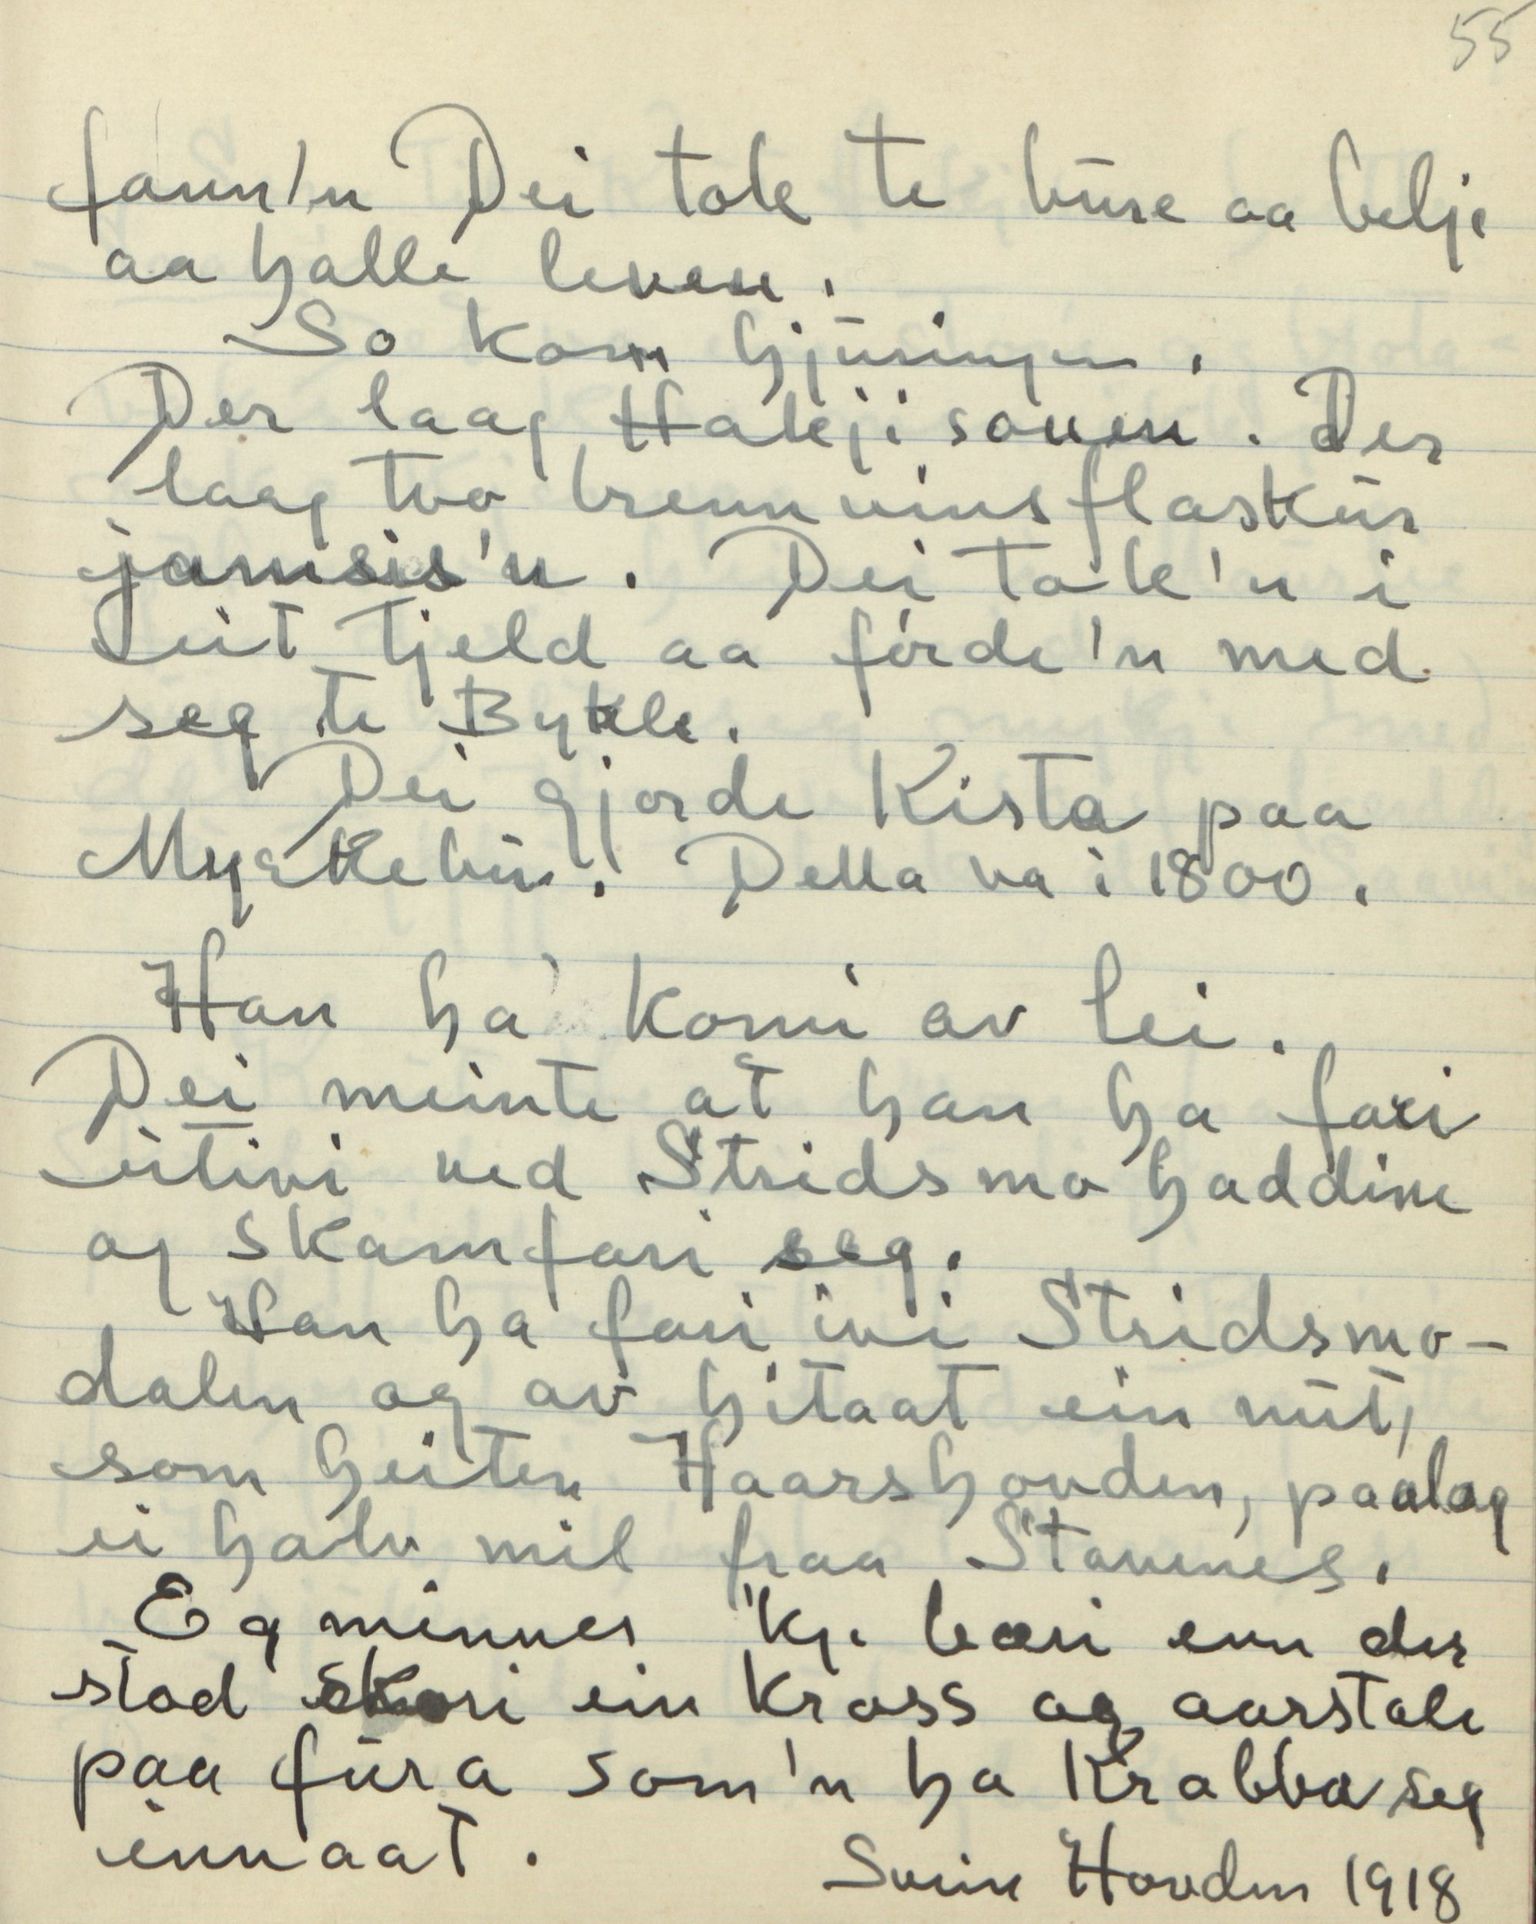 55
fann'n Dei tok te büre aa belje
aa halle leven.
So kom hjüringen.
Der laag Hakji soven. Der
laag tvo brennvinsflaskür
jamsis'n. Dei tok'n i
eit tjeld aa förde'n med
seg te Bykle.
Dei gjorde Kista paa
Myrkebür. Detta va i 1800.
Han ha komi av lei.
Dei meinte at han ha fari
ütivi ved Stridsmohaddine
og skamfari seg.
Han ha fari ivi Stridsmo-
dalen og av hitaat ein nüt,
som heiter Haarshovden, paalag
ei halv mil fraa Stavenes.
Eg minnes 'kje bæri enn der
stod skori ein kross og aarstale
paa füra som'n ha krabba seg
innaat.
Svein Hovden 1918